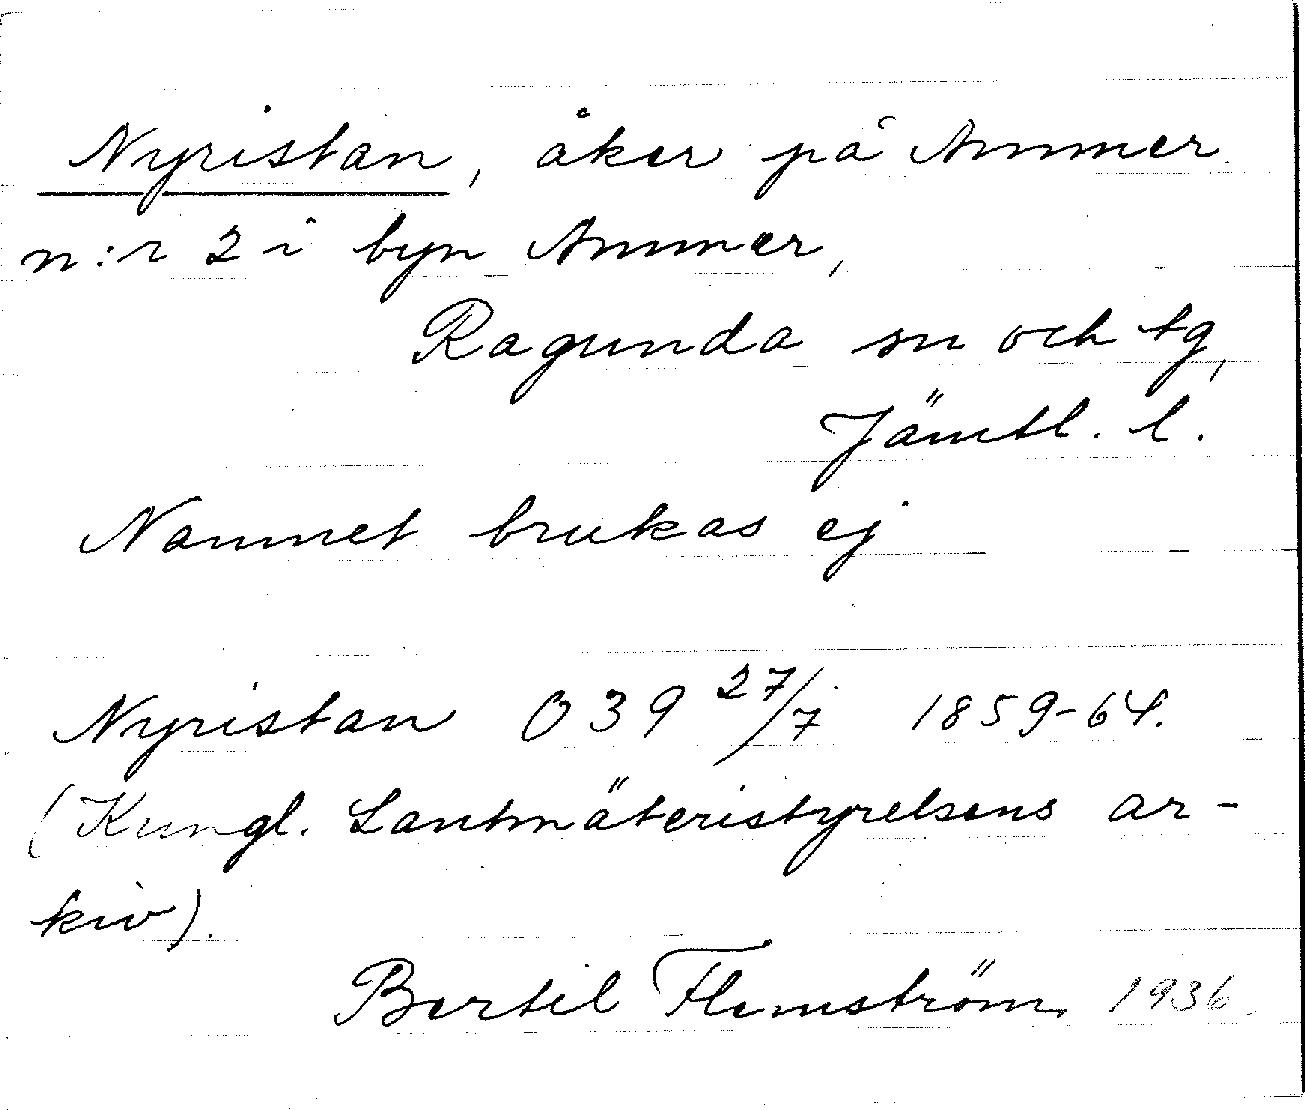 Nyristan, åker på Ammer
n:r 2 i byn Ammer,
Ragunda sn och tg,
Jämtl. l.
Namnet brukas ej
Nyristan O 39 27/7 1859-64.
(Kungl. Lantmäteristyrelsens ar-
kiv).
Bertil Flemström 1936